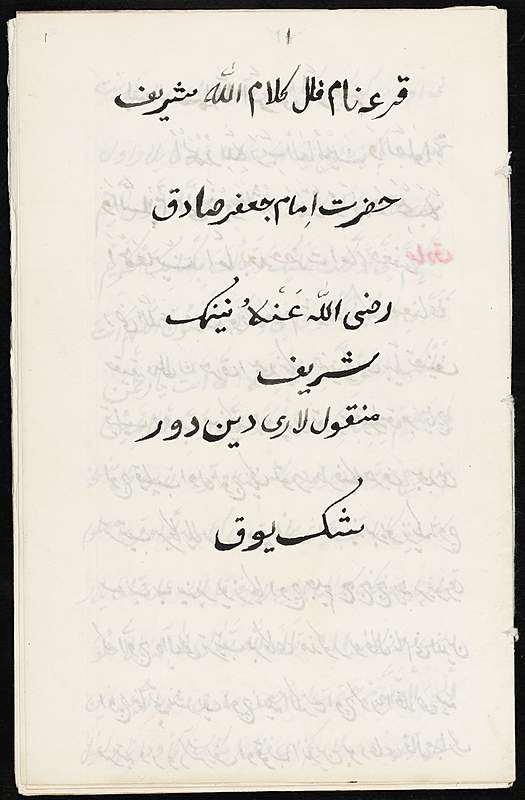 ١
قرعه نام فال کلام الله شریف
حضرت اِمام جعفر صادق
رضی الله عَنْهُ نینک
شریف
منقول لاری دین دور
شک یوق